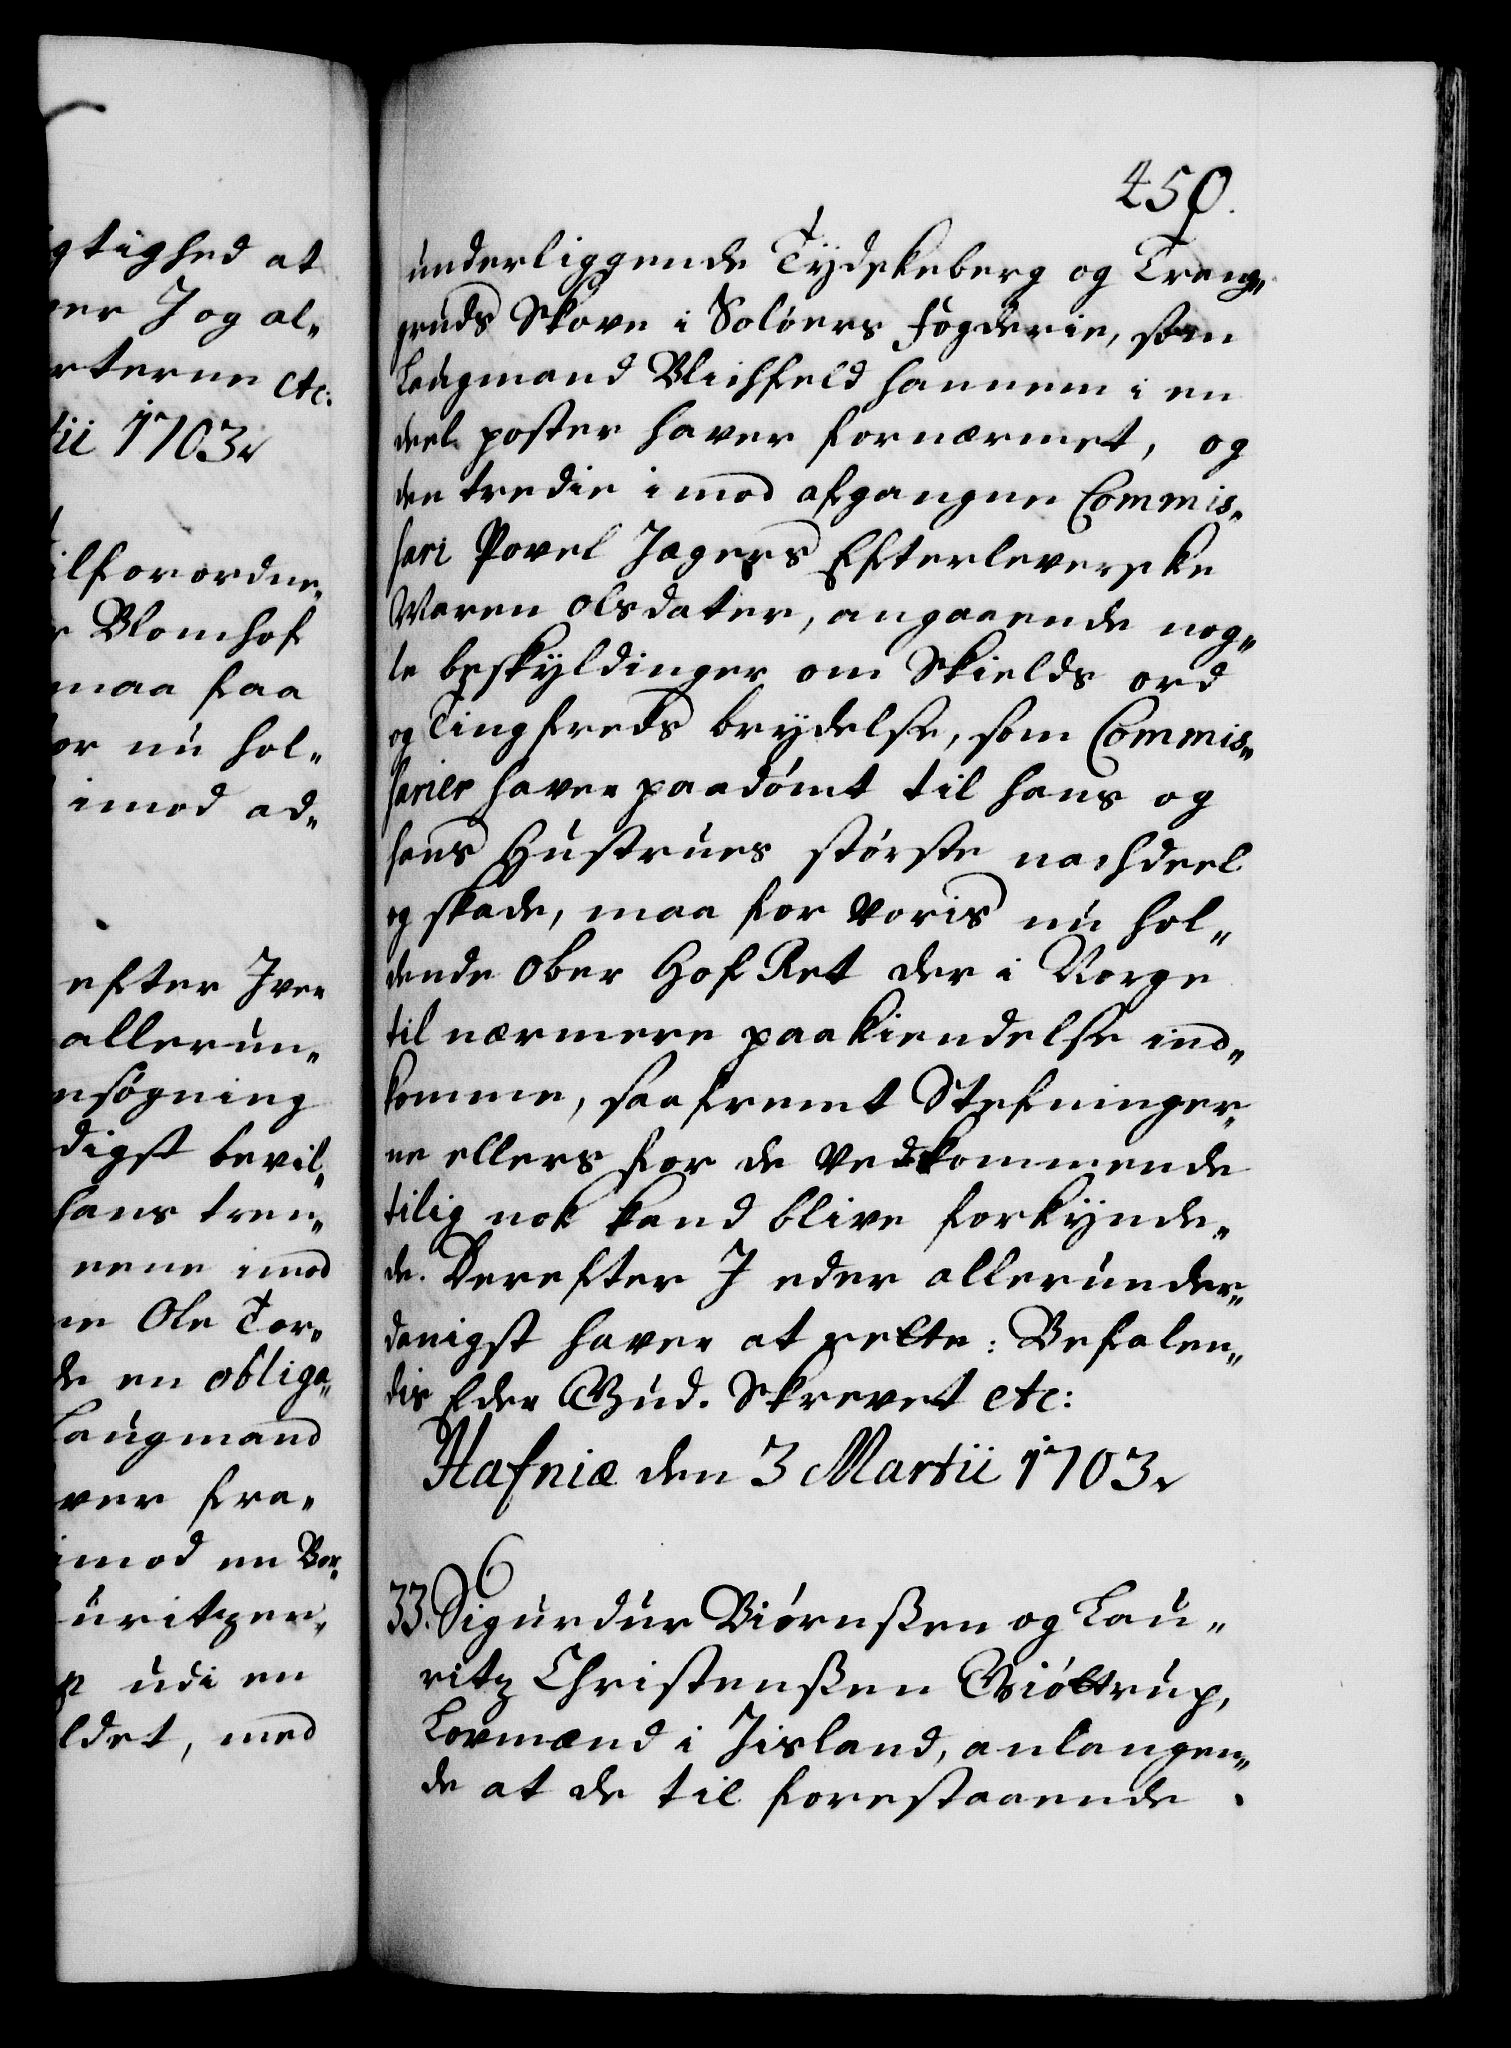 gtighed at
er J og al„
rterne etc:
tii 1703.
ilforordne„
r Blomhof
maa faa
or nu hol„
imod ad„
efter Iver
allerun„
nsøgning
digst bevil„
hans tren„
nene imod
ne Ole Tor„
de en obliga„
Laugmand
ver fra„
imod en Bor„
uritzen„
udi en
ldet, med
450.
underliggende Tydskeberg og Trang„
gruds Skove i Soløers fogderie, som
Laugmand Blichfeld hannem i en
deel poster haver fornærmet, og
den tredie imod afgangne Commis„
sari Povel Jagers Efterleverske
Maren olsdater, angaaende nog„
le beskyldinger om Skields ord
og Tingfreds brydelse, som Commis„
sarier haver paadømt til hans og
hans Hustrues største nachdeel
og skade, maa for voris nu hol„
dende Ober Hof Ret der i Norge
til nærmere paakiendelse ind„
komme, saafremt Stefninger„
ne ellers for de vedkommende
tilig nok kand blive forkynde„
de. Derefter J eder allerunder„
danigst haver at rette: Befalen„
dis Eder Gud. Skrevet etc:
Hafniæ den 3 Martii 1703.
6
33. Sigurdur Biørnßen og Lau„
ritz Christenßen Giøttrup,
Lovmænd i Jisland, anlangen„
de at de til forestaaende